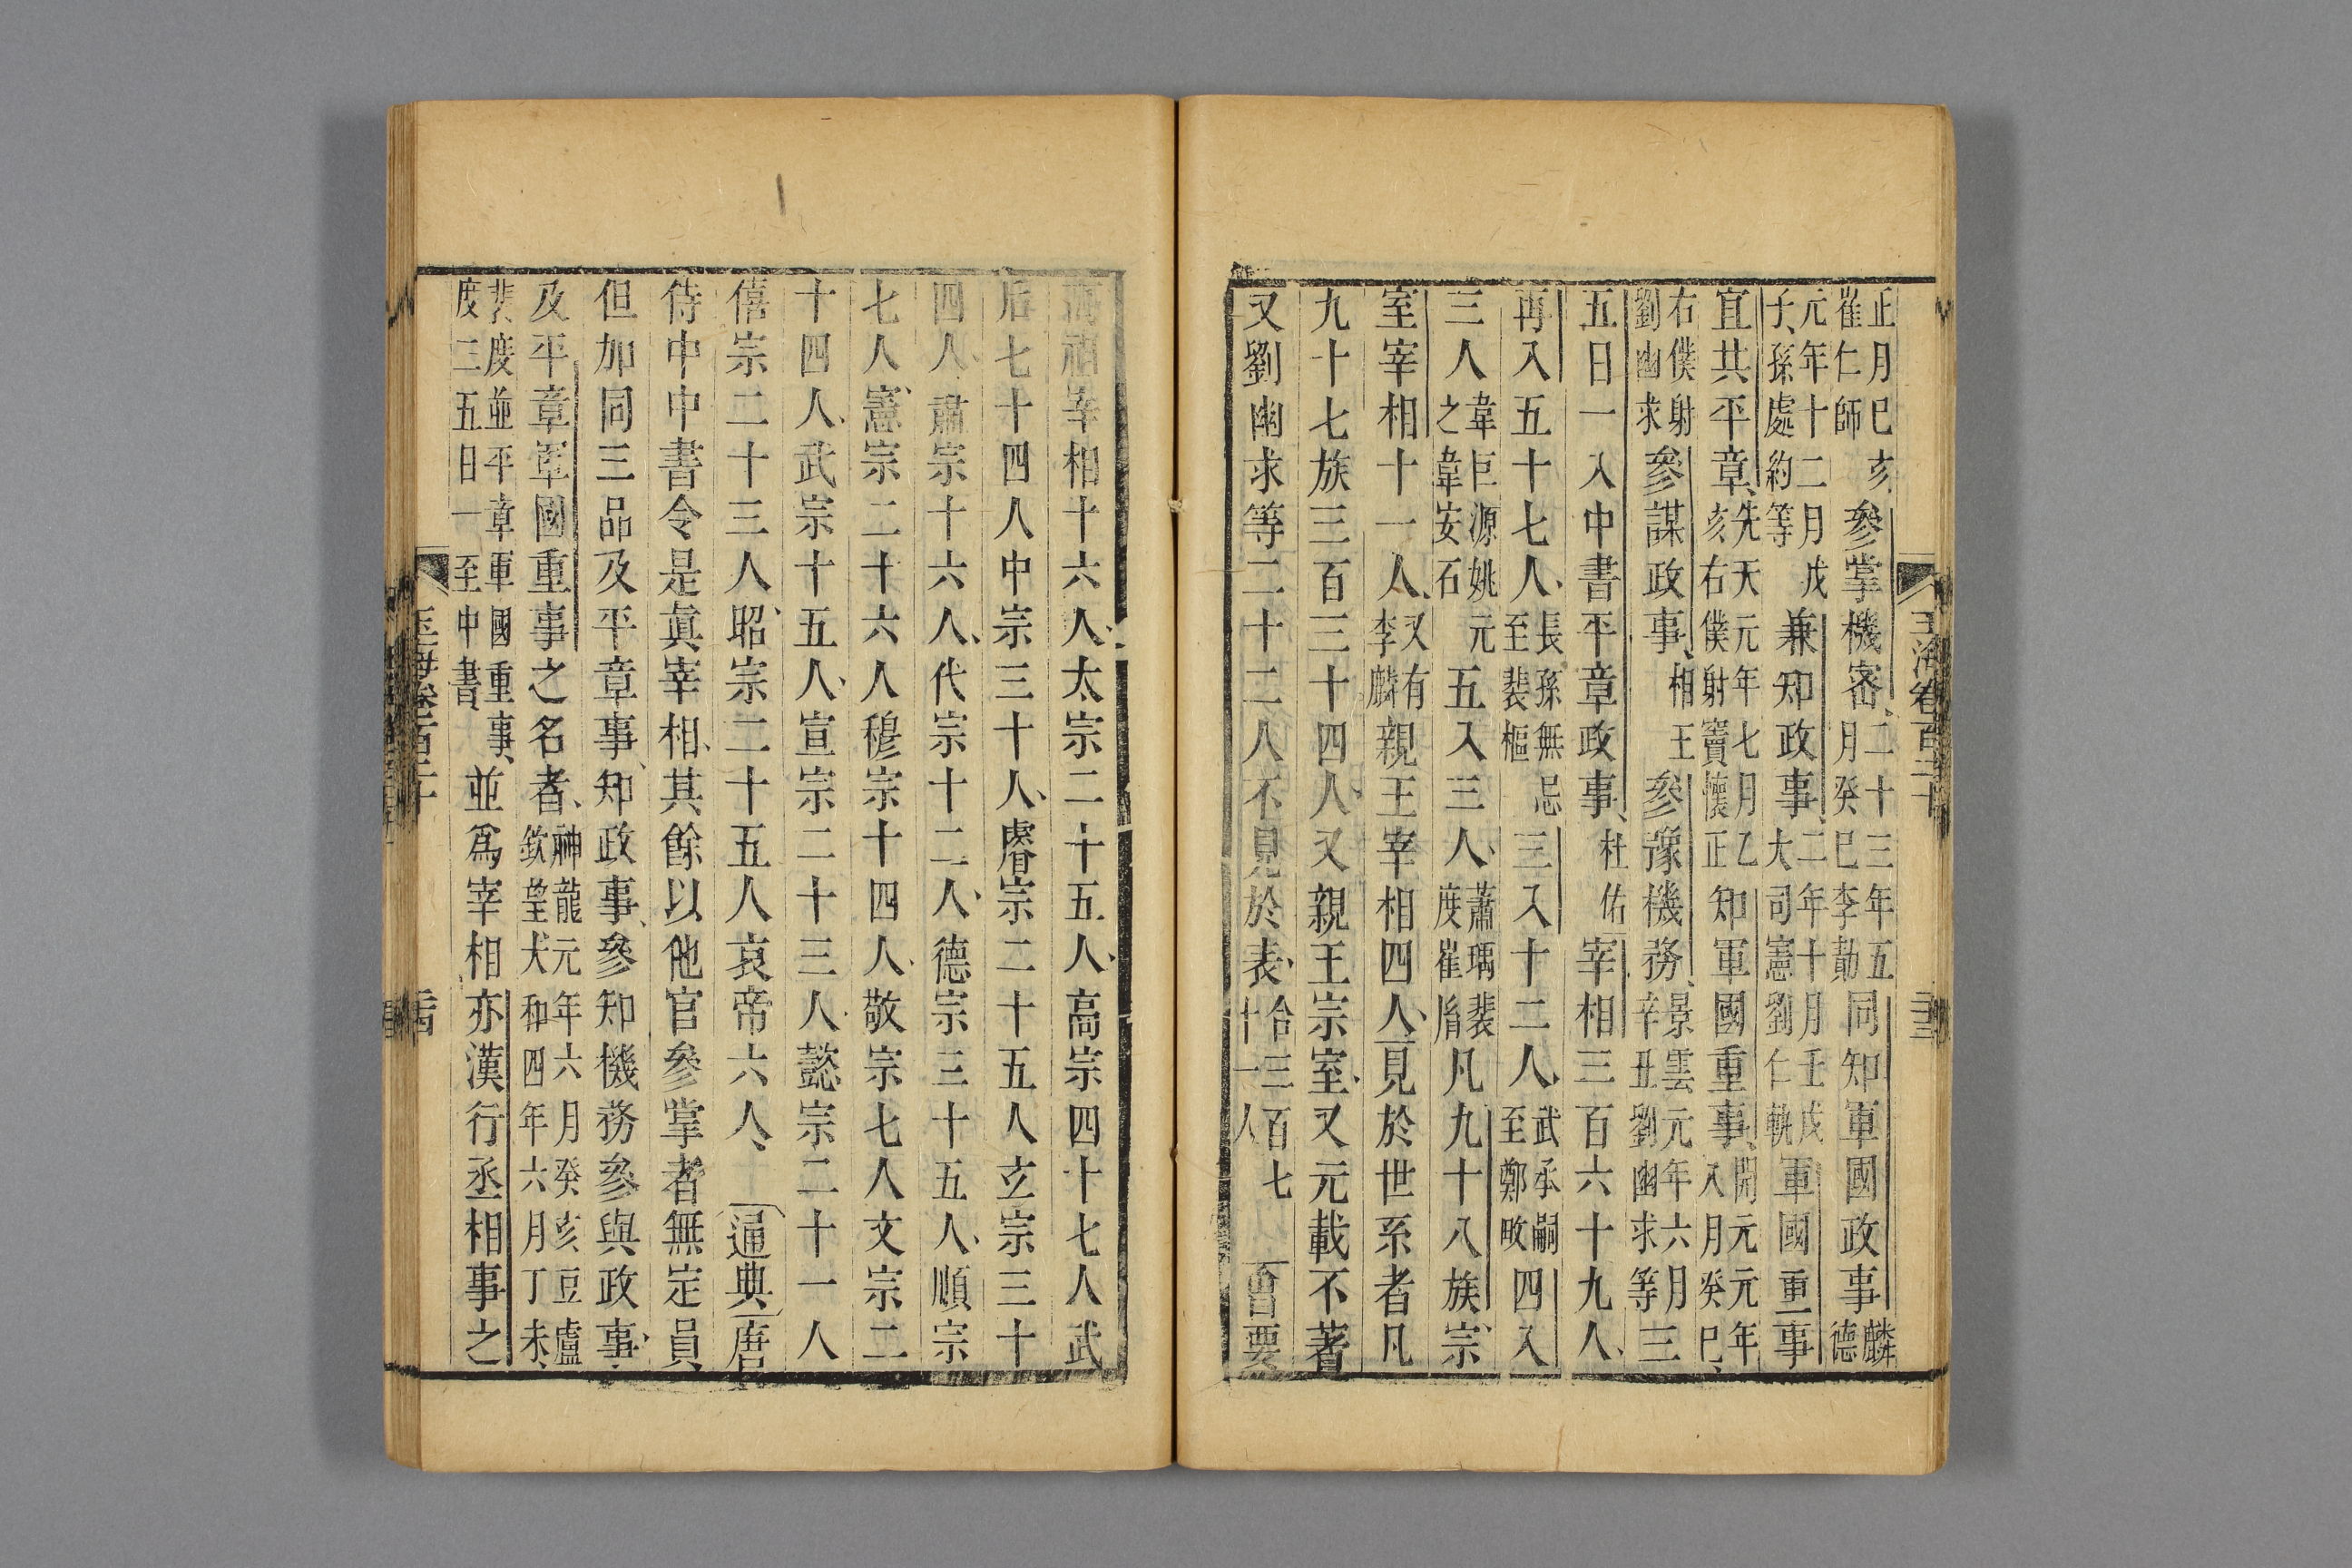 正月巳亥崔仁師參掌機密二十三年五月癸巳李勣同知軍國政事麟德
元年十二月戊子孫處約等兼知政事二年十月壬戌大司憲劉仁軌軍國重事
宜共平章先天元年七月乙亥右僕射竇懷正知軍國重事開元元年八月癸巳
右僕射劉幽求參謀政事相王參豫機務景雲元年六月辛丑劉幽求等三
五日一入中書平章政事杜佑宰相三百六十九人
再入五十七人長孫無忌至裴樞三入十二人武承嗣至鄭畋四入
三人韋巨源姚元之韋安石五入三人蕭瑀裴度崔胤凡九十八族宗
室宰相十一人又有李麟親王宰相四人見於世系者凡
九十七族三百三十四人又親王宗室又元載不著
又劉幽求等二十二人不見於表合三百七十一人會要
高祖宰相十六人太宗二十五人高宗四十七人武
后七十四人中宗三十人睿宗二十五人玄宗三十
四人肅宗十六人代宗十二人德宗三十五人順宗
七人憲宗二十六人穆宗十四人敬宗七人文宗二
十四人武宗十五人宣宗二十三人懿宗二十一人
僖宗二十三人昭宗二十五人哀帝六人通典唐
侍中中書令是眞宰相其餘以他官參掌者無定員
但加同三品及平章事知政事參知機務參與政事
及平章軍國重事之名者神龍元年六月癸亥豆盧欽望大和四年六月丁未
裴度並平章軍國重事度三五日一至中書並爲宰相亦漢行丞相事之
玉海卷百二十
二十三
玉海卷百二十
二十四